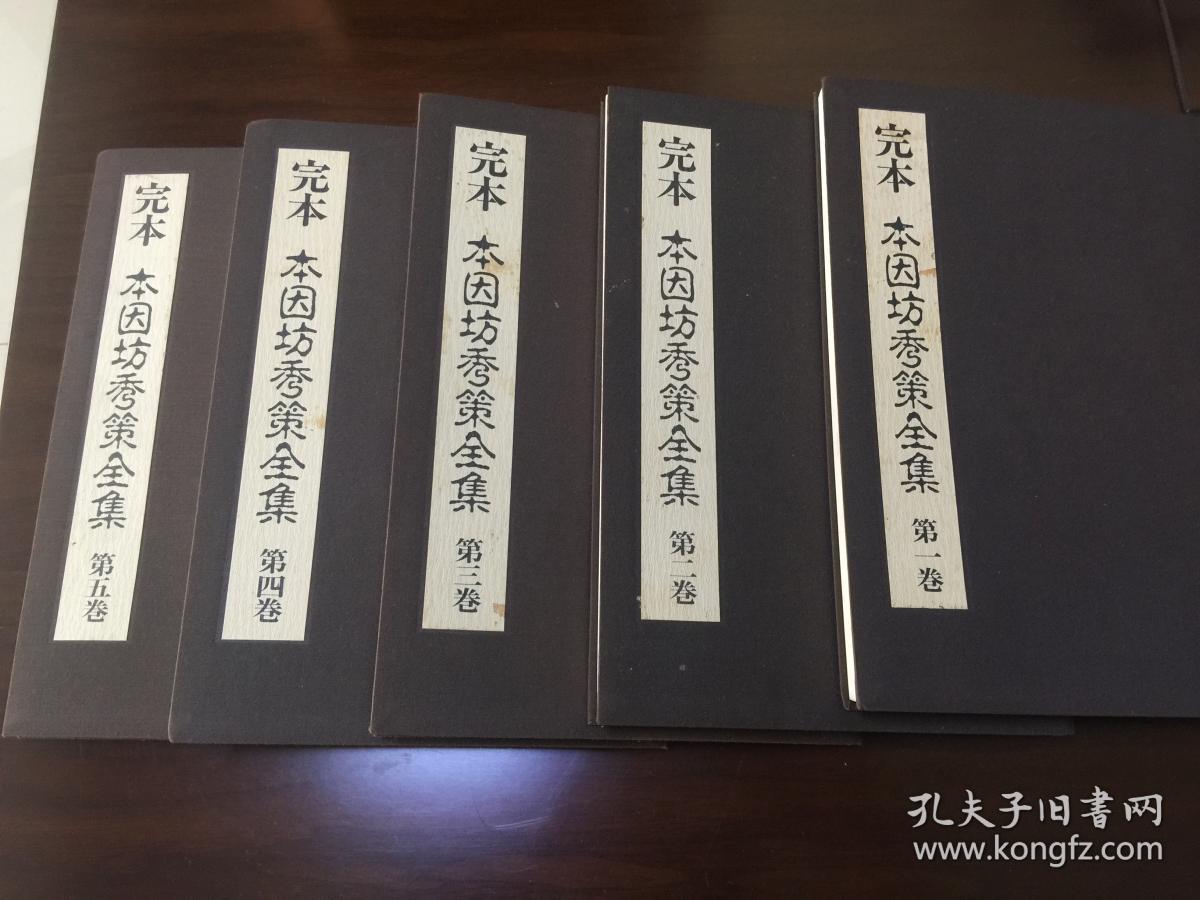 完本 本因坊秀策全集 第一巻
完本 本因坊秀策全集 第二巻
完本 本因坊秀策全集 第三巻
完本 本因坊秀策全集 第四巻
完本 本因坊秀策全集 第五巻
孔夫子旧書网
www.kongfz.com